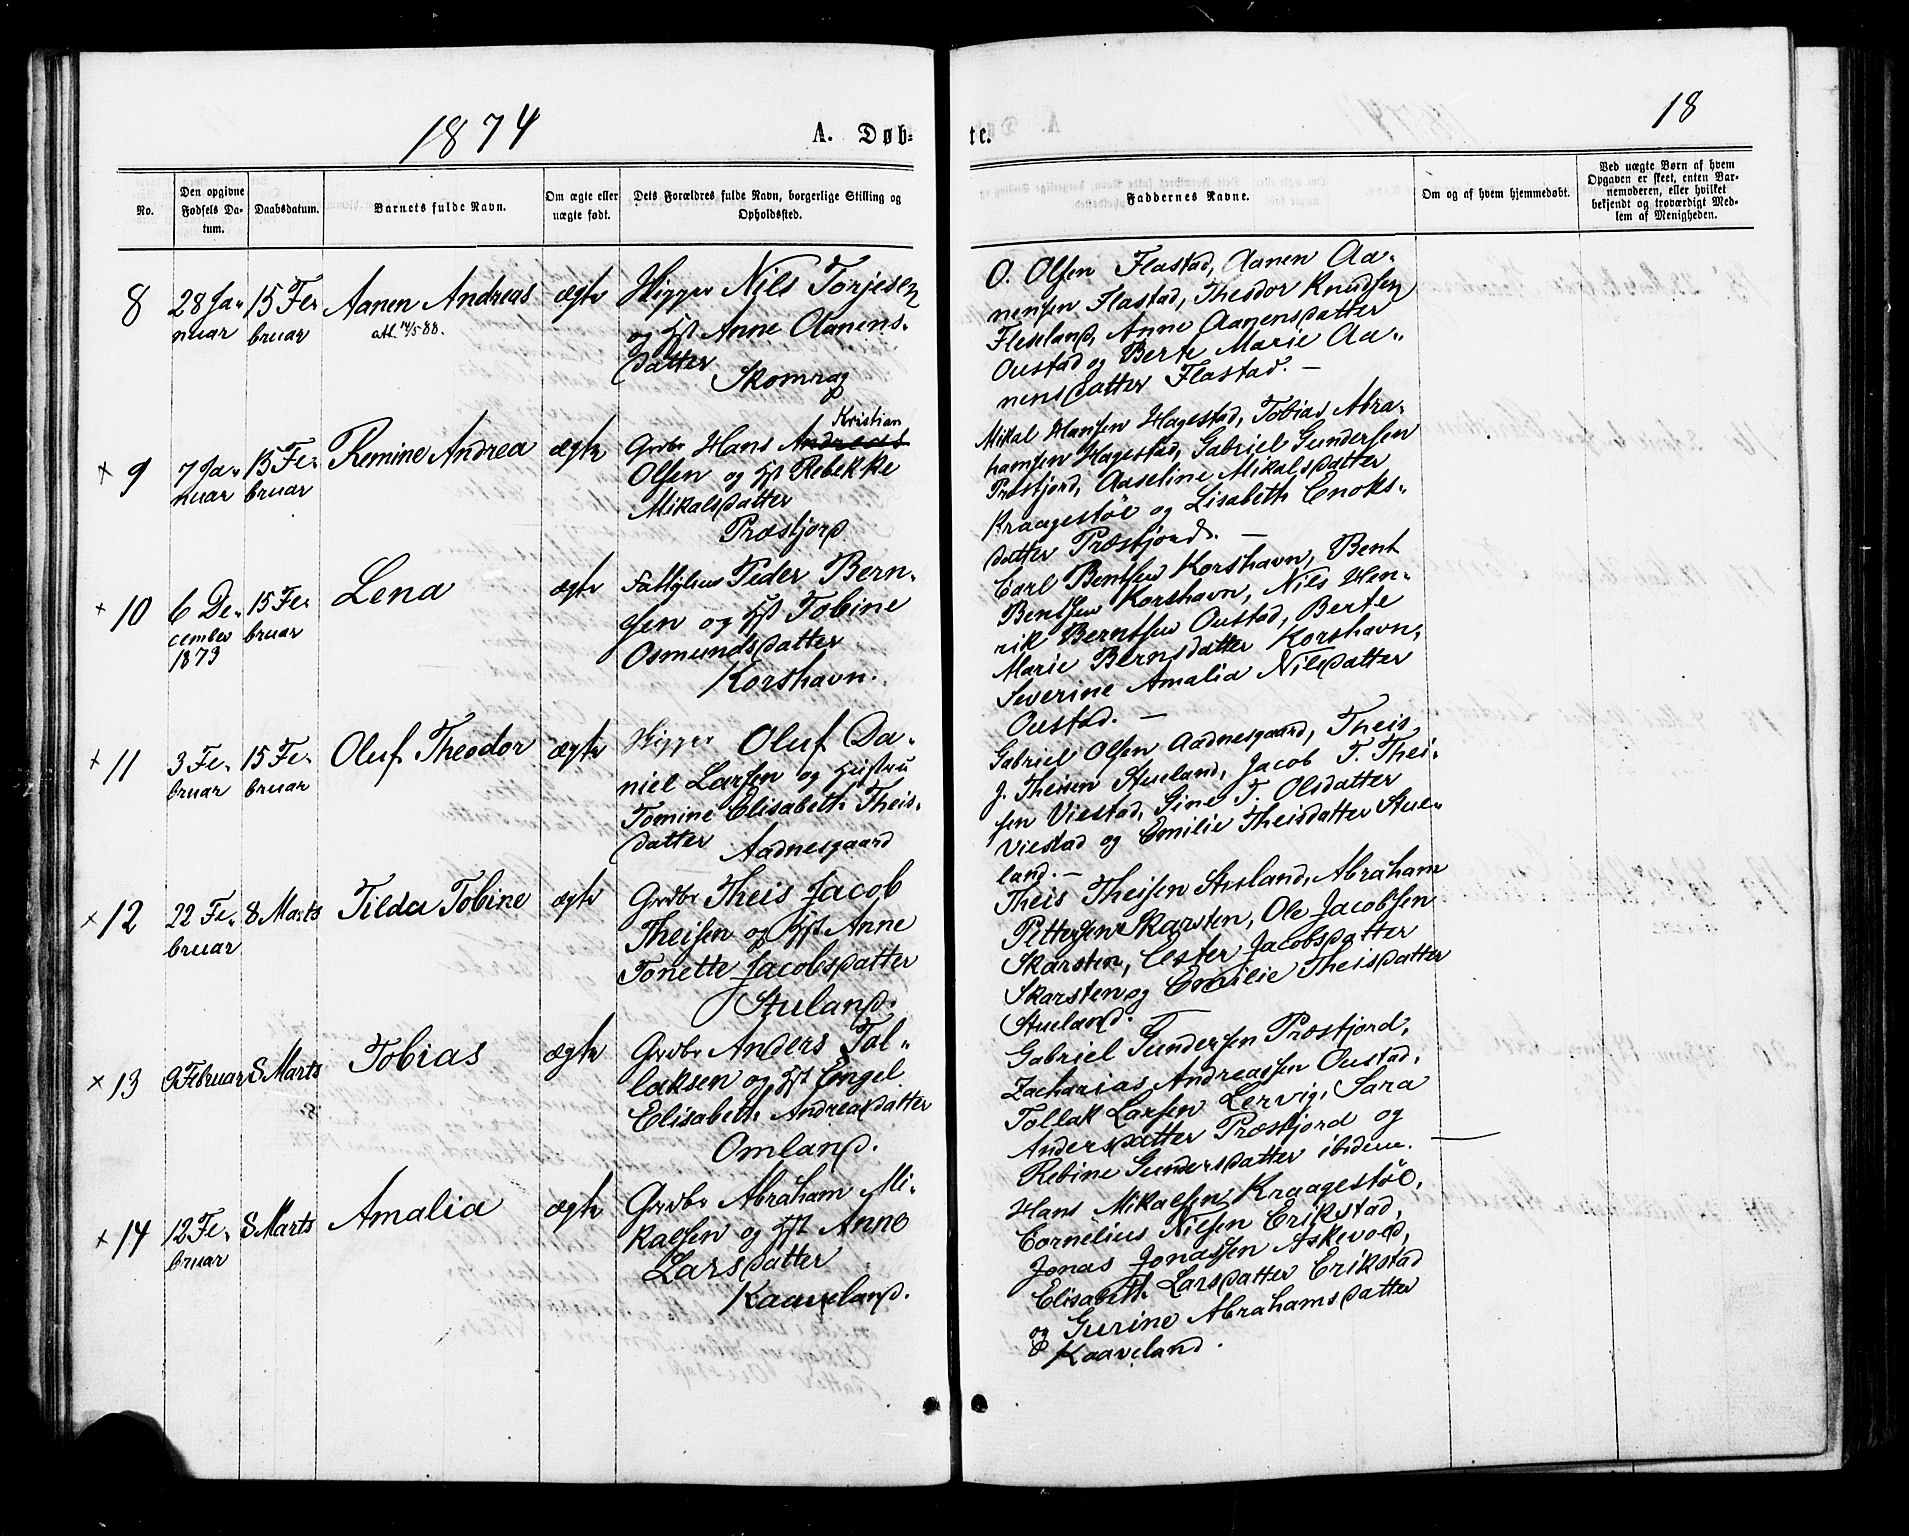 1874
A. Døb-
te.
18
No.
Den opgivne Fødsels Da-tum.
Daabsdatum.
Barnets fulde Navn.
Om ægte eller uægte født.
Dets Forældres fulde Navn, borgerlige Stilling og Opholdssted.
Faddernes Navne.
Om og af hvem hjemmedøbt.
Ved uægte Børn af hvem Opgaven er skeet, enten Bar-nemoderen, eller hvilket bekjendt og troværdigt Med-lem af Menigheden.
8
28 Ja-
nuar
15 Fe-
bruar
Aanen Andreas
att. 14/5 88.
ægte
Higger Nils Torjesen
og Hst Anne Aanens-
datter
Skomrag
O. Olsen Flastad, Aanen Aa-
nensen Flastad, Theodor Knudsen
Fleseland, Anne Aanensdatter
Oustad og Berte Marie Aa-
nensdatter Flastad. —
× 9
7 Ja-
nuar
15 Fe-
bruar
Remine Andrea
ægte
Kristian
Grdbr Hans Andreas
Olsen og Hst Rebekke
Mikalsdatter
Præstjord
Mikal Hansen Hagestad, Tobias Abra-
hamsen Hagestad, Gabriel Gundersen
Præstjord, Aaseline Mikalsdatter
Kraagestøl og Lisabeth Enoks-
datter Præstjord. —
× 10
6 De-
cember
1873
15 Fe-
bruar
Lena
ægte
Fattiglem Peder Bern-
sen og Hst Tobine
Osmundsdatter
Korshavn.
Carl Bentsen Korshavn, Bent
Bentsen Korshavn, Nils Hen-
rik Berntsen Oustad, Berte
Marie Bernsdatter Korshavn,
Severine Amalia Nilsdatter
Oustad. —
× 11
3 Fe-
bruar
15 Fe-
bruar
Oluf Theodor
ægte
Higger Oluf Da-
niel Larsen og Hustru
Tomine Elisabeth Theis-
datter Aadnesgaard
Gabriel Olsen Aadnesgaard, Theis
J. Theisen Stueland, Jacob T. Thei-
sen Viestad, Sine T. Olsdatter
Viestad og Emilie Theisdatter Stue-
land. —
× 12
22 Fe-
bruar
8 Marts
Tilda Tobine
ægte
Grdbr Theis Jacob
Theisen og Hst Anne
Tonette Jacobsdatter
Stueland.
Theis Theisen Stueland, Abraham
Pettersen Skarsten, Ole Jacobsen
Skarsten, Ester Jacobsdatter
Skarsten og Emilie Theisdatter
Stueland. —
× 13
9 Februar
8 Marts
Tobias
ægte
Grdbr Anders Tol-
laksen og Hst Engel
Elisabeth Andreasdatter
Omland.
Gabriel Gundersen Præstjord,
Zacharias Andreassen Oustad,
Tollak Larsen Lervig, Sara
Andersdatter Præstjord og
Rebine Gundersdatter ibidem. —
× 14
12 Fe-
bruar
8 Marts
Amalia
ægte
Grdbr Abraham Mi-
kalsen og Hst Anne
Larsdatter
Kaaveland.
Hans Mikaelsen Kraagestøl,
Cornelius Nilsen Erikstad,
Jonas Jonassen Askevold,
Elisabeth Larsdatter Erikstad
og Gurine Abrahamsdatter
Kaaveland.